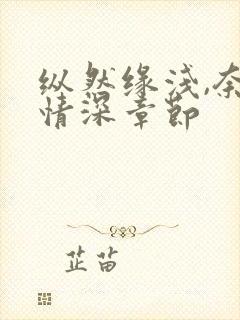 纵然缘浅,奈
情深章节
芷苗